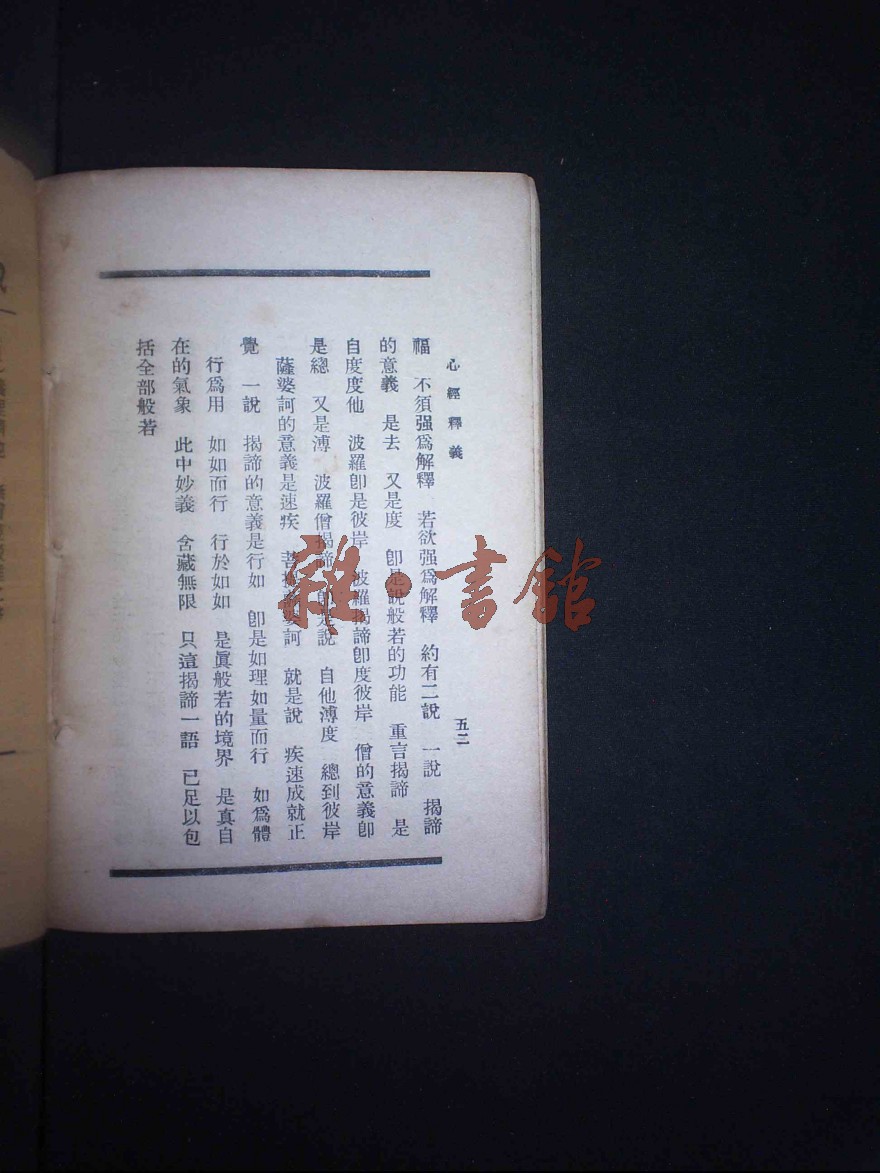 心經釋義
五二
福　不須强爲解釋　若欲强爲解釋　約有二說　一說　揭諦
的意義　是去　又是度　卽是說般若的功能　重言揭諦　是
自度度他　波羅卽是彼岸　波羅揭諦卽度彼岸　僧的意義卽
是總　又是溥　波羅僧揭諦　卽是說　自他溥度　總到彼岸
薩婆訶的意義是速疾　菩提薩婆訶　就是說　疾速成就正
覺　一說　揭諦的意義是行如　卽是如理如量而行　如爲體
行爲用　如如而行　行於如如　是眞般若的境界　是真自
在的氣象　此中妙義　含藏無限　只這揭諦一語　已足以包
括全部般若
雜·書館